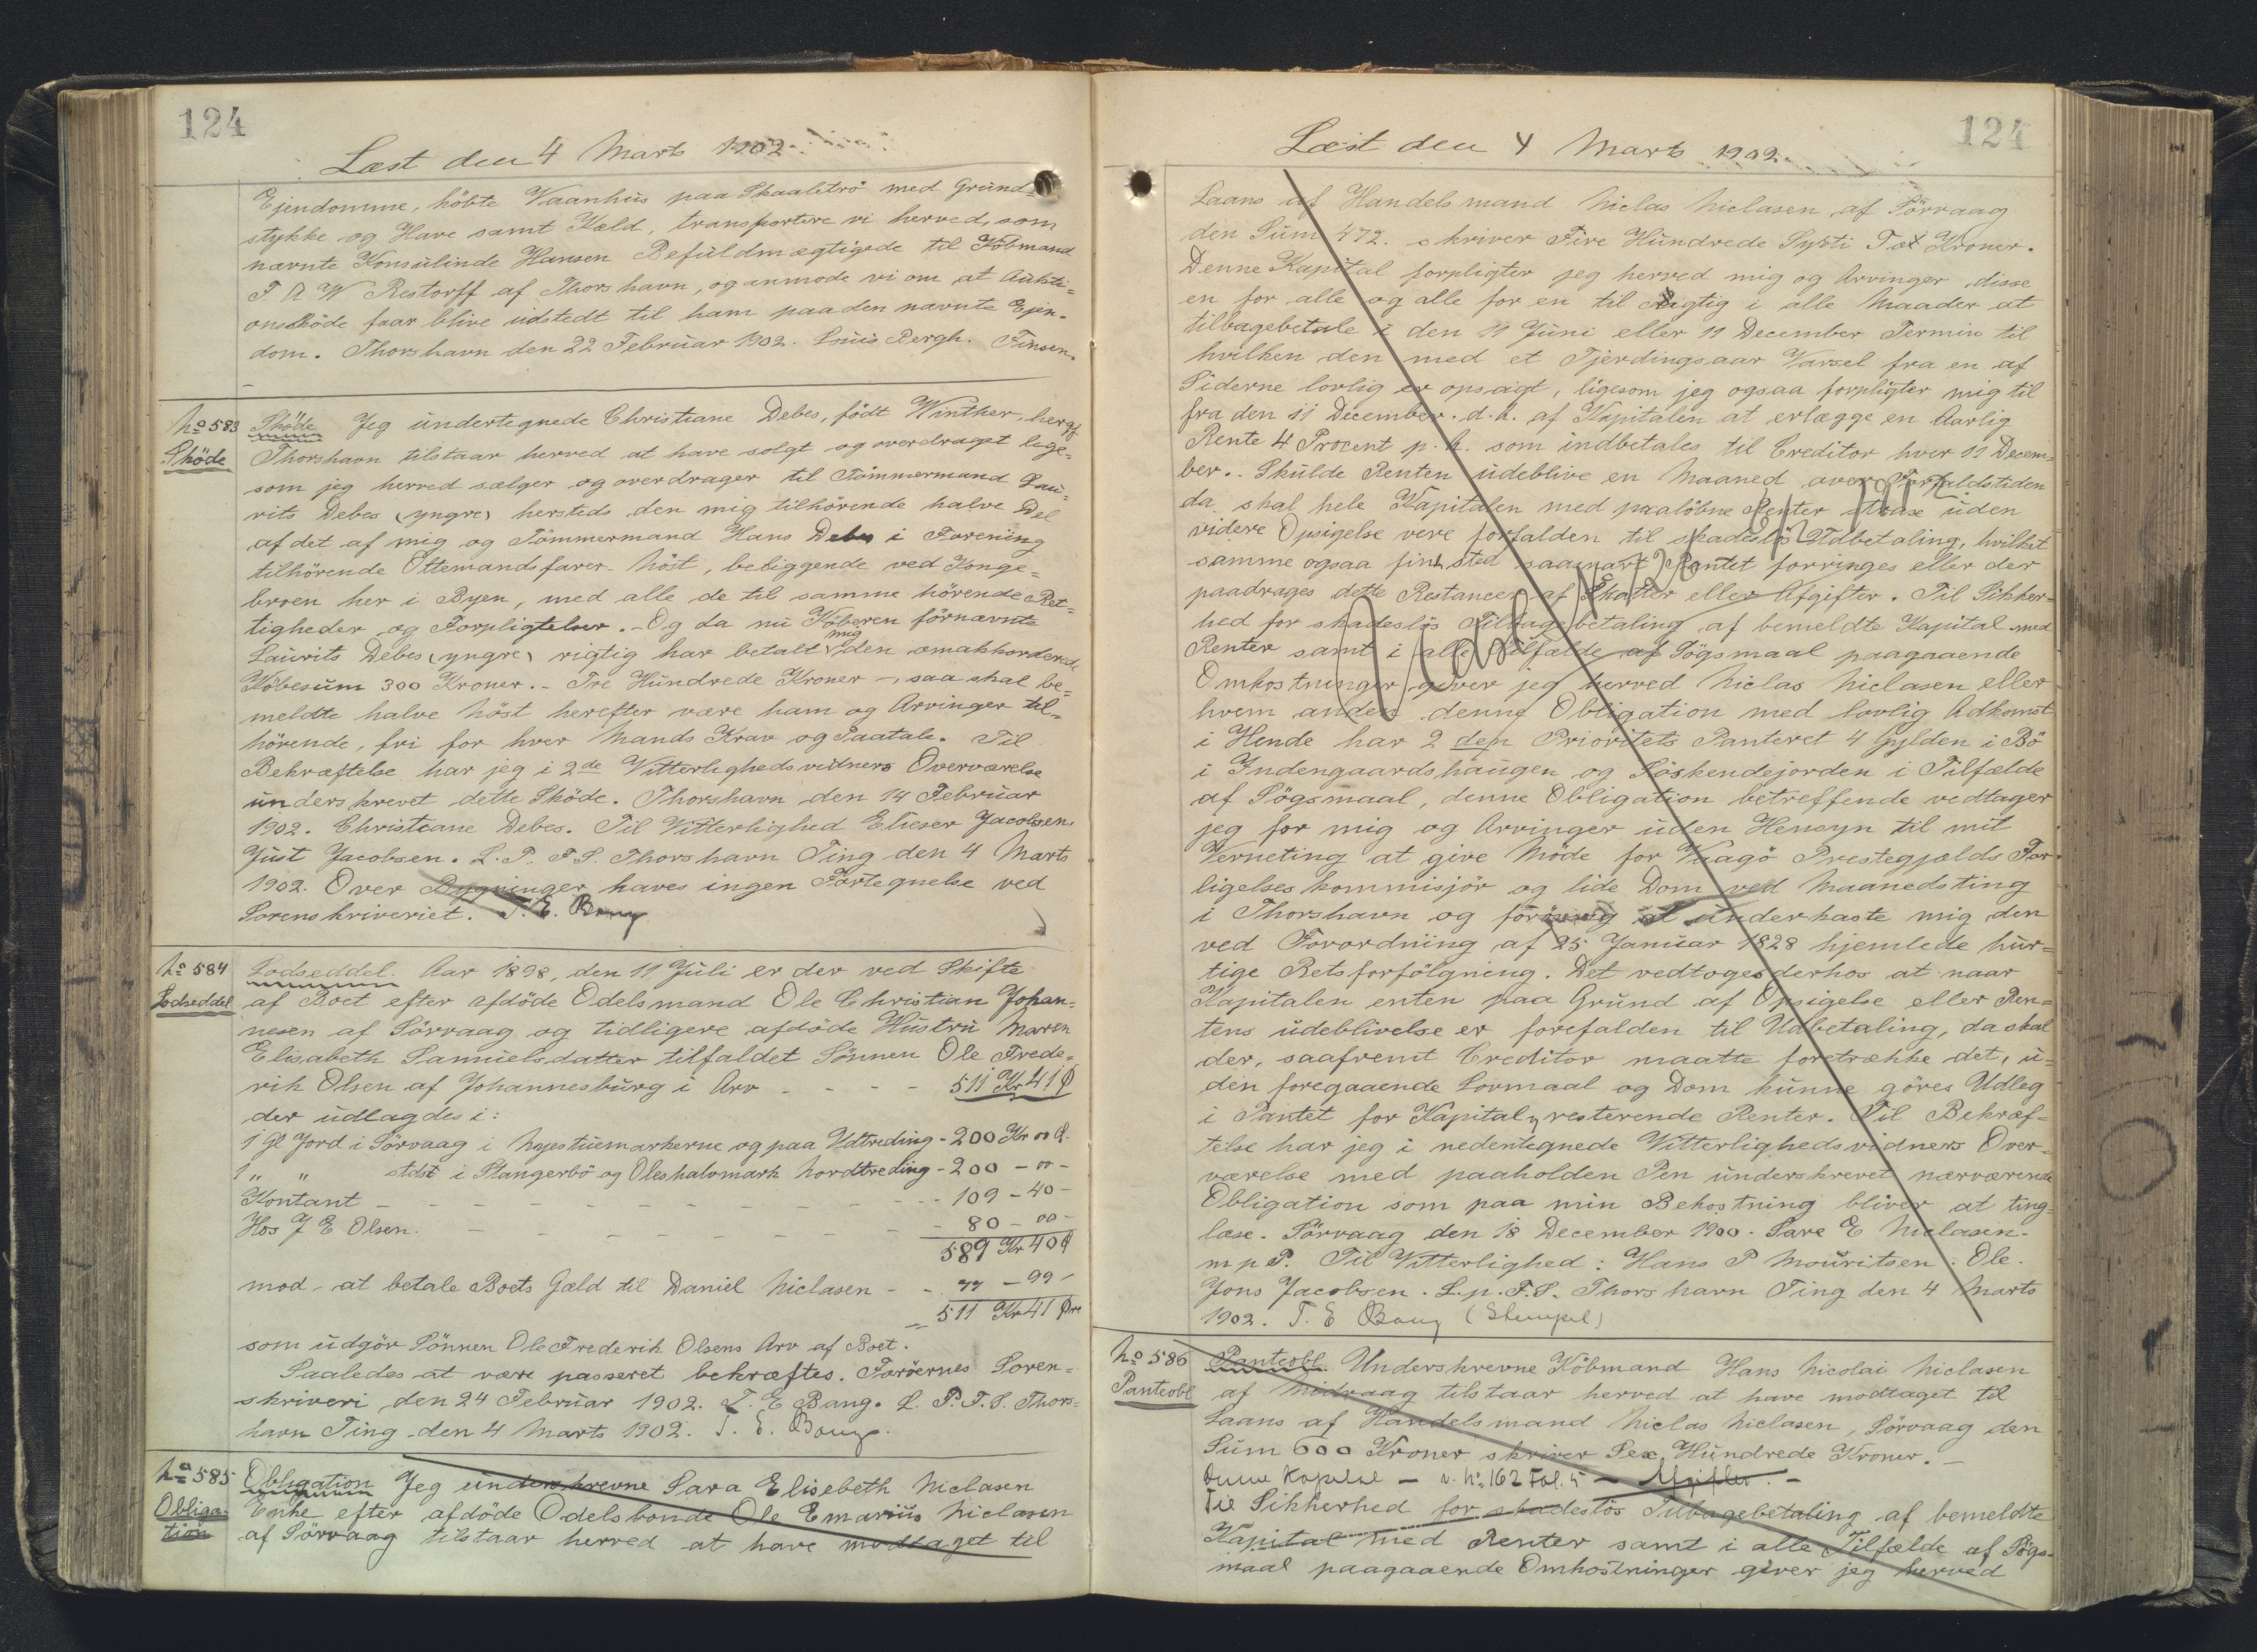 124
Læst den 4 Marts 1902.
Ejendomme, köbte Vaanhus paa Skaaletrö med Grund-
stykke og Have samt Kæld, transportere vi herved, som
nævnte Konsulinde Hansen Befuldmægtigede tilKöbmand
T A W Restorff af Thorshavn, og anmode vi om at Aukti-
onssköde faar blive udstedt til ham paa den nævnte Ejen-
dom. Thorshavn den 22 Februar 1902. Louis Bergh. Finsen.
No 583
Sköde
Sköde Jeg undertegnede Christiane Debes, födt Winther, her af
Thorshavn tilstaar herved at have solgt og overdraget lige-
som jeg herved sælger og overdrager til Tömmermand Lau-
rits Debes (yngre) hersteds den mig tilhörende halve Del
af det af mig og Tömmermand Hans Debes i Forening
tilhörende Ottemandsfarer-Nöst, beliggende ved Konge-
broen her i Byen, med alle de til samme hörende Ret-
tigheder og Forpligtelser. - Og da nu Köberen fornævnte
Laurits Debes (yngre) rigtig har betalt mig den omakkorderede
Köbesum 300 Kroner. - Tre Hundrede Kroner -, saa skal be-
meldte halve Nöst herefter være ham og Arvinger til-
hörende, fri for hver Mands Krav og Paatale. Til
Bekræftelse har jeg i 2de Vitterlighedsvidners Overværelse
underskrevet dette Sköde. Thorshavn den 14 Februar
1902. Christiane Debes. Til Vitterlighed Elieser Jacobsen.
Just Jacobsen. L. P. F S. Thorshavn Ting den 4 Marts
1902. Over Bygninger haves ingen Fortegnelse ved
Sorenskriveriet. T. E. Bang
No 584
Lodseddel
Lodseddel. Aar 1898, den 11 Juli er der ved Skifte
af Boet efter afdöde Odelsmand Ole Christian Johan-
nesen af Sörvaag og tidligere afdöde Hustru Maren
Elisabeth Samuelsdatter tilfaldet Sönnen Ole Frede-
rik Olsen af Johannesburg i Arv - - - - 511 Kr 41 Ø
der udlagdes i:
1 Gl Jord i Sörvaag i Nyestuemarkerne og paa Udtreding - 200 Kr 00 Ø.
1 " " stdst i Stangerbö og Oleshalvmark Nordtreding - 200 - 00 -
Kontant - - - - - - - - - - 109 - 40 -
Hos J E Olsen. - - - - - - - - 80 - 00 -
589 Kr 40 Ø
mod - at betale Boets Gæld til Daniel Niclasen - - 77 - 99 -
511 Kr 41 Øre
som udgör Sönnen Ole Frederik Olsens Arv af Boet.
Saaledes at være passeret bekræftes. Færöernes Soren-
skriveri den 24 Februar 1902. T. E Bang. L. P. F. S. Thors-
havn Ting den 4 Marts 1902. T. E. Bang.
No 585
Obliga-
tion
Obligation Jeg underskrevne Sara Elisebeth Niclasen
Enke efter afdöde Odelsbonde Ole Emarius Niclasen
af Sörvaag tilstaar herved at have modtaget til
124
Læst den 4 Marts 1902.
Laans af Handelsmand Niclas Niclasen af Sörvaag
den Sum 472. skriver Fire Hundrede Sytti To Kroner.
Denne Kapital forpligter jeg herved mig og Arvinger disse
en for alle og alle for en til rigtig i alle Maader at
tilbagebetale i den 11 Juni eller 11 December Termin til
hvilken den med et Fjerdingsaar Varsel fra en af
Siderne lovlig er opsagt, ligesom jeg ogsaa forpligter mig til
fra den 11 December. d. A. af Kapitalen at erlægge en Aarlig
Rente 4 Procent p. A. som indbetales til Creditor hver 11 Decem-
ber. Skulde Renten udeblive en Maaned over Forfaldstiden
da skal hele Kapitalen med paalöbne Renter strax uden
videre Opsigelse vere forfalden til skadeslös Udbetaling, hvilket
samme ogsaa finder sted saasnart Pantet forringes eller der
paadrages dette Restancer af Skatter eller Afgifter. Til Sikker-
hed for skadeslös Tilbagebetaling af bemeldte Kapital med
Renter samt i alle Tilfælde af Sögsmaal paagaaende
Omkostninger giver jeg herved Niclas Niclasen eller
hvem anden denne Obligation med lovlig Adkomst
i Hende har 2 den Prioritets Panteret 4 Gylden i Bö
i Indengaardshaugen og Söskendejorden i Tilfælde
af Sögsmaal, denne Obligation betreffende vedtager
jeg for mig og Arvinger uden Hensyn til mit
Verneting at give Möde for Vaagö Prestegjælds For-
ligelseskommisjör og lide Dom ved Maanedsting
i Thorshavn og forövrig at underkaste mig den
ved Forordning af 25 Januar 1828 hjemlede hur-
tige Retsforfölgning. Det vedtoges derhos at naar
Kapitalen enten paa Grund af Opsigelse eller Ren-
tens udeblivelse er forefalden til Udbetaling, da skal
der, saafremt Creditor maatte foretrække det, u-
den foregaaende Lovmaal og Dom kunne göres Udleg
i Pantet for Kapital og resterende Renter. Til Bekræf-
telse har jeg i nedentegnede Vitterlighedsvidners Over-
værelse med paaholden Pen underskrevet nærværende
Obligation som paa min Bekostning bliver at ting-
læse. Sörvaag den 18 December 1900. Sare E Niclasen.
m p P. Til Vitterlighed: Hans P Mouritsen. Ole.
Jons Jacobsen. L. p. F. S. Thorshavn Ting den 4 Marts
1902. T. E Bang (Stempel)
No 586
Panteobl
Panteobl. Underskrevne Köbmand Hans Nicolai Niclasen
af Midvaag tilstaar herved at have modtaget til
Laans af Handelsmand Niclas Niclasen, Sörvaag den
Sum 600 Kroner skriver Sex Hundrede Kroner. -
Denne Kapital - v. No 162 Fol. 5 - Afgifter. -
Til Sikkerhed for skadeslös Tilbagebetaling af bemeldte
Kapital med Renter samt i alle Tilfælde af Sögs-
maal paagaaende Omkostninger giver jeg herved